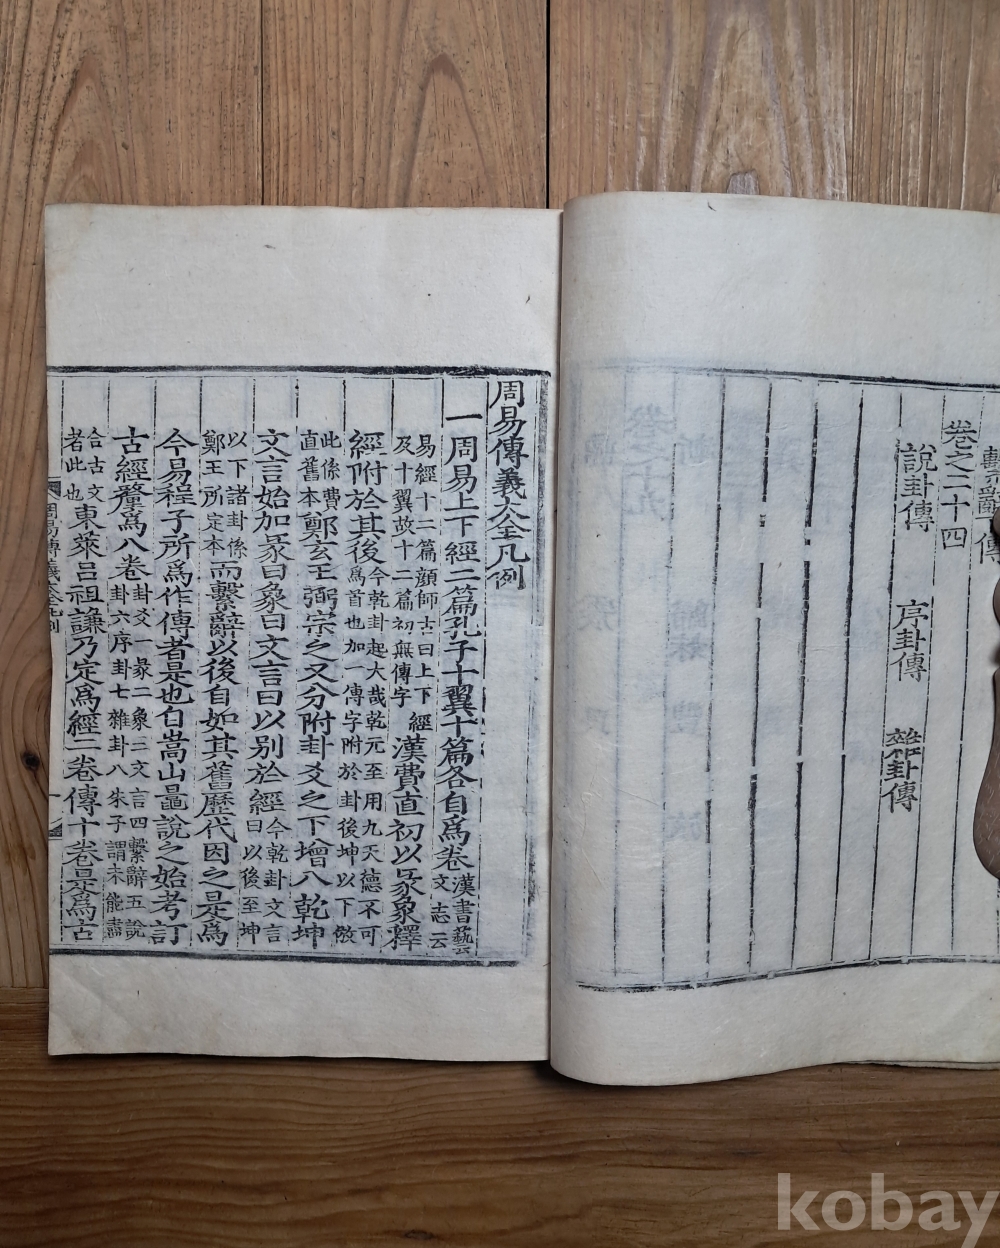 繫辭傳
卷之二十四
說卦傳 序卦傳 雜卦傳
周易傳義大全凡例
一周易上下經二篇孔子十翼十篇各自爲卷漢書藝文志云
易經十二篇顔師古曰上下經
及十翼故十二篇初無傳字漢費直初以彖象釋
經附於其後今乾卦起大哉乾元至用九天德不可
爲首也加一傳字附於卦後坤以下倣
此係費
直舊本鄭玄王弼宗之又分附卦爻之下增入乾坤
文言始加彖曰象曰文言曰以別於經今乾卦文言
曰以後至坤
以下諸卦係
鄭王所定本而繫辭以後自如其舊歷代因之是爲
今易程子所爲作傳者是也自嵩山晁說之始考訂
古經釐爲八卷卦爻一彖二象三文言四繫辭五說
卦六序卦七雜卦八朱子謂未能盡
合古文
者此也東萊呂祖謙乃定爲經二卷傳十卷是爲古
周易傳義大全凡例 一
kobay